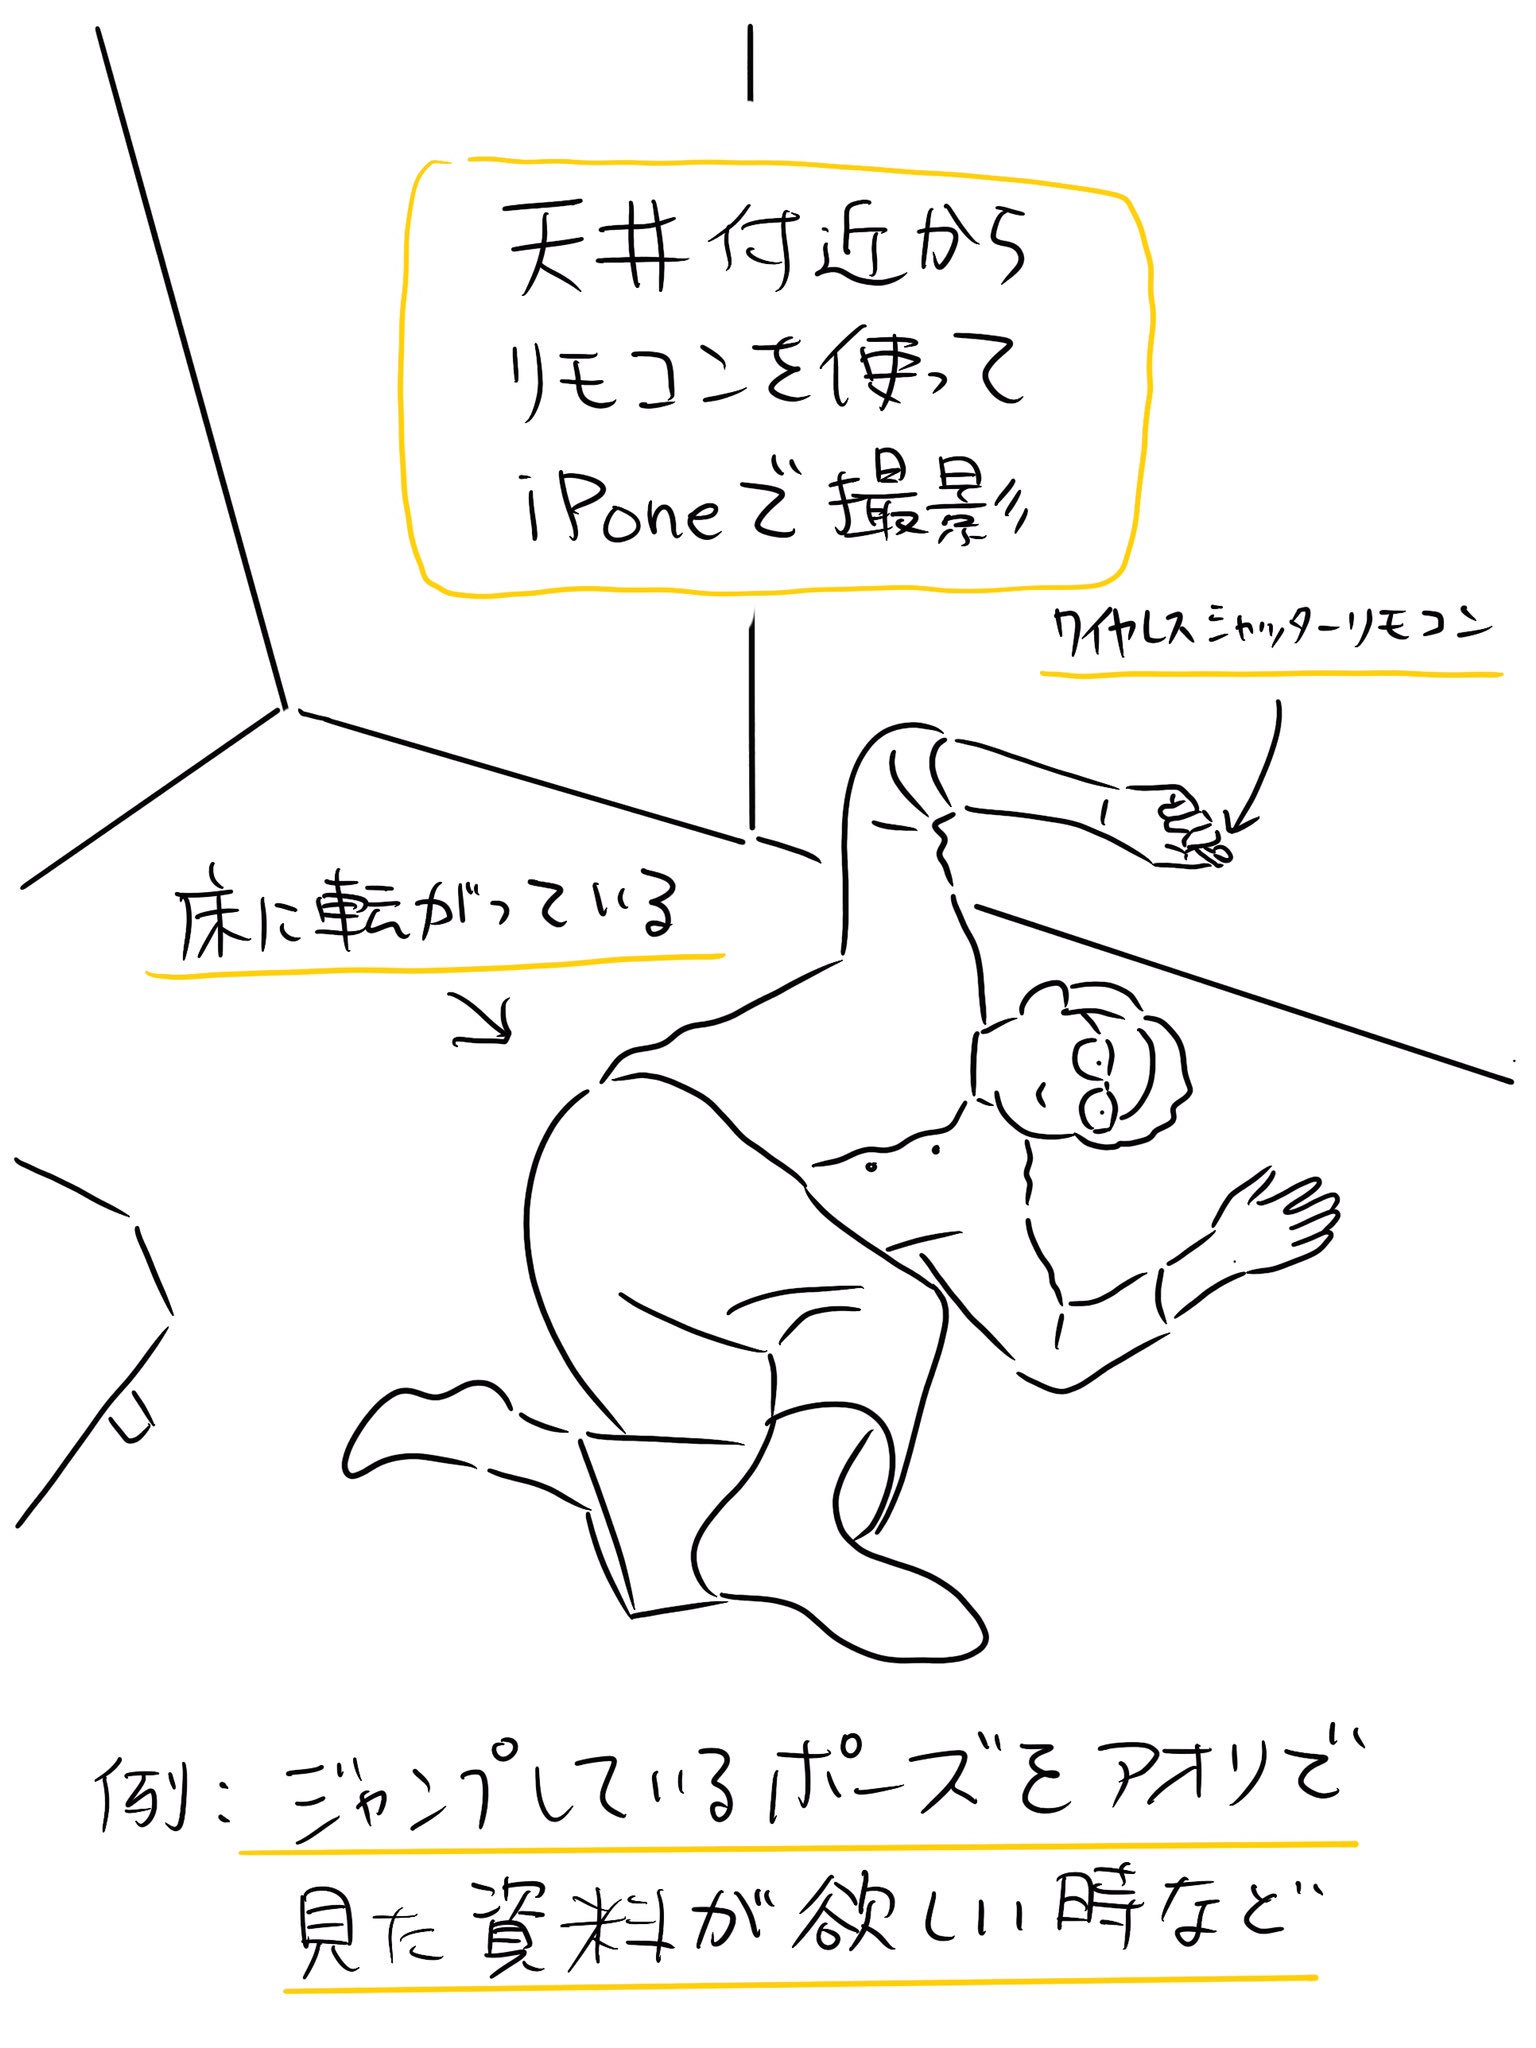 天井付近から
リモコンを使って
iPoneで撮影
ワイヤレスシャッターリモコン
床に転がっている
例:ジャンプしているポーズをアオリで
見た資料が欲しい時など